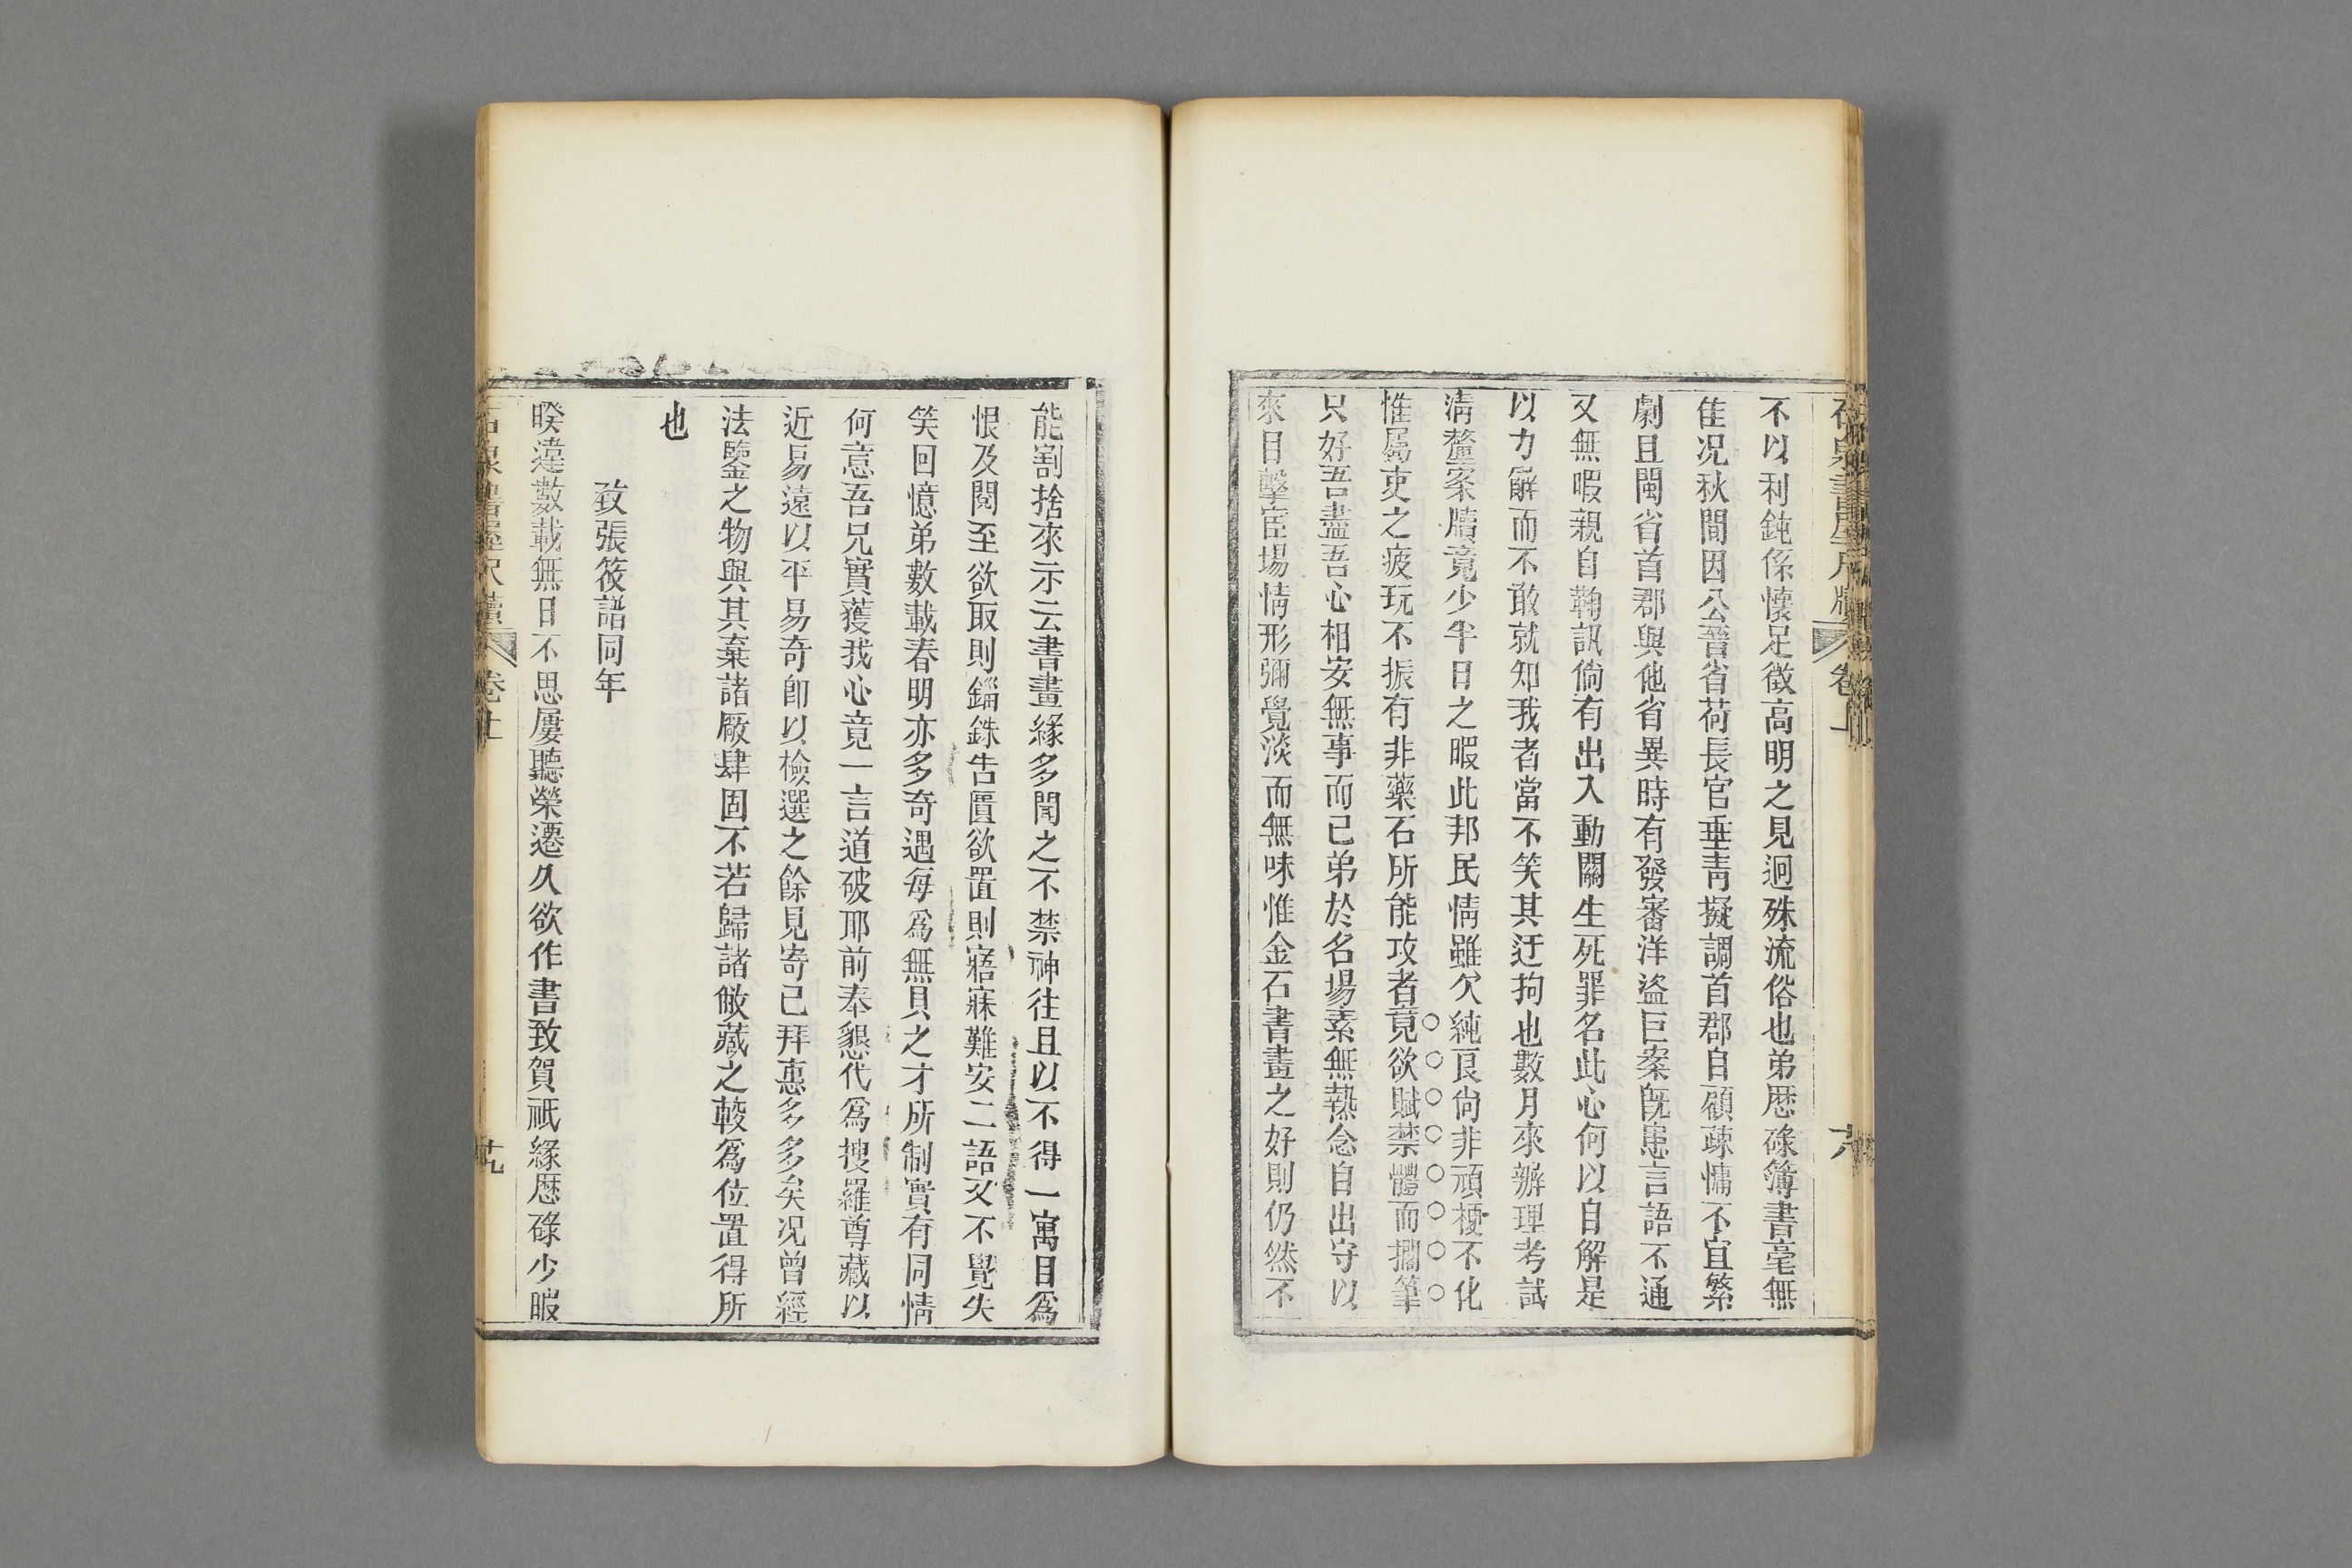 不以利鈍係懷足徵高明之見迥殊流俗也弟歷碌簿書毫無
佳况秋間因公晉省荷長官垂青擬調首郡自顧疎慵不宜繁
劇且閩省首郡與他省異時有發審洋盜巨案旣患言語不通
又無暇親自鞫訊倘有出入動關生死罪名此心何以自解是
以力辭而不敢就知我者當不笑其迂拘也數月來辦理考試
淸釐案牘竟少半日之暇此邦民情雖欠純良尙非頑梗不化
惟屬吏之疲玩不振有非藥石所能攻者竟欲賦禁體而擱筆
只好吾盡吾心相安無事而已弟於名塲素無熱念自出守以
來目擊宦塲情形彌覺淡而無味惟金石書畫之好則仍然不
能割捨來示云書畫緣多聞之不禁神往且以不得一寓目爲
恨及閱至欲取則錙銖吿匱欲置則寤寐難安二語又不覺失
笑回憶弟數載春明亦多奇遇每爲無貝之才所制實有同情
何意吾兄實獲我心竟一言道破耶前奉懇代爲搜羅尊藏以
近易遠以平易奇卽以檢選之餘見寄已拜惠多多矣况曾經
法鑒之物與其棄諸厰肆固不若歸諸敝藏之較爲位置得所
也
致張筱譜同年
睽違數載無日不思屢聽榮遷久欲作書致賀祇緣歷碌少暇
石泉書屋尺牘 卷上 十九